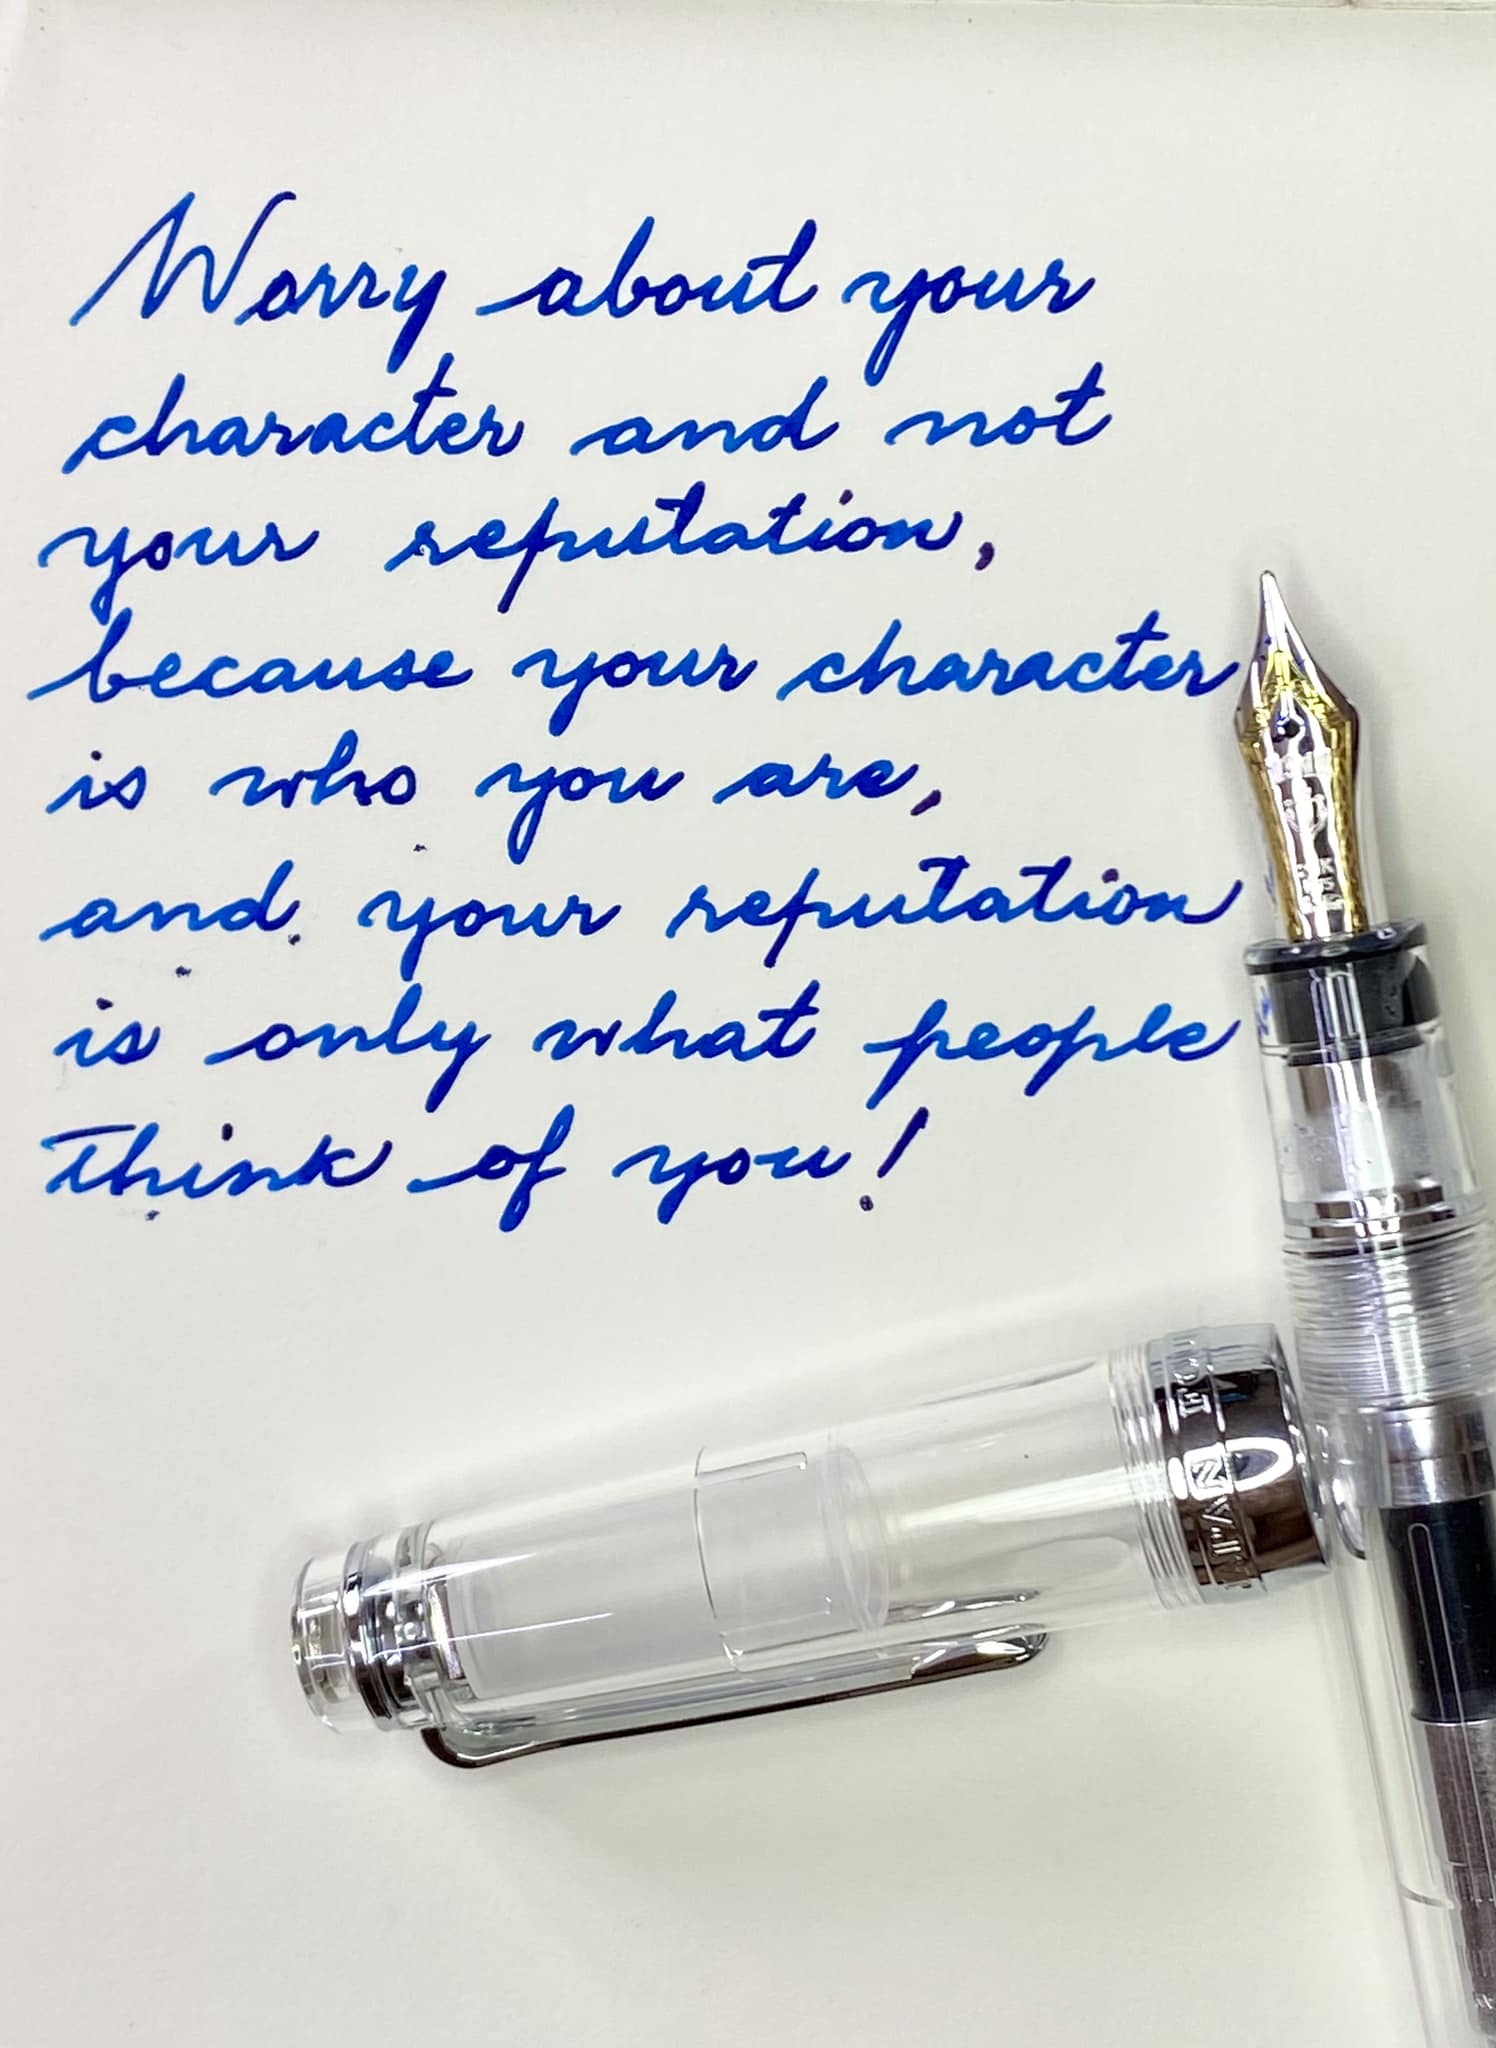 Worry about your
character and not
your reputation,
because your character
is who you are,
and your reputation
is only what people
think of you!